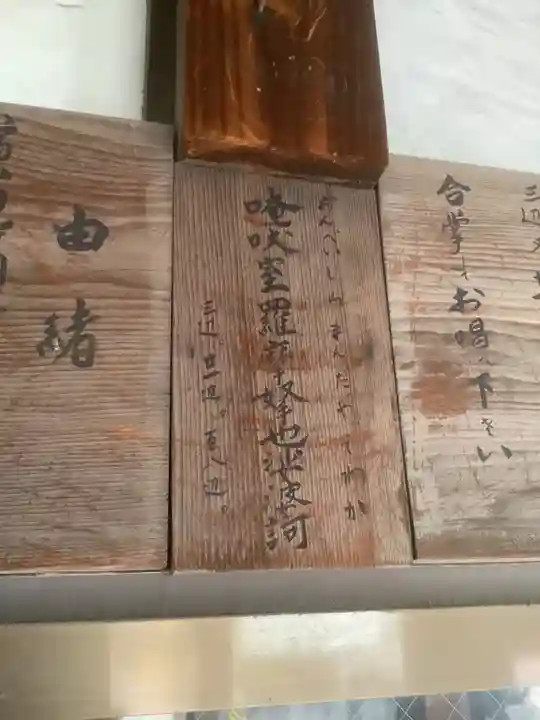 合掌しお唱へ下さい
おんべいしらまんだやそわか
唵吠室羅 拏也 波訶
三辺。廿一辺。百八辺。
由緒